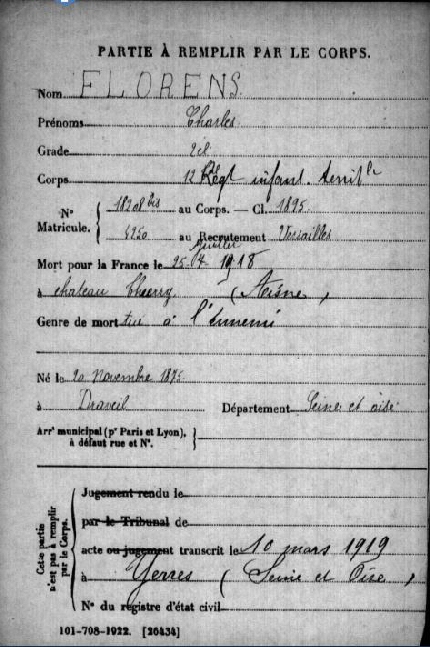 PARTIE À REMPLIR PAR LE CORPS.
Nom FLORENS
Prénoms Charles
Grade 2cl
Corps 12 Régt infant. territle
N° Matricule. { 18208 bis au Corps. — Cl. 1895
4250 au Recrutement Versailles
Mort pour la France le 25 1918
à chateau thierry (Aisne)
Genre de mort tué à l'ennemi
Né le 20 Novembre 1875
à Draveil Département Seine et oise
Arrt municipal (pr Paris et Lyon),
à défaut rue et N°.
Cette partie
n'est pas à remplir
par le Corps.
Jugement rendu le
par le Tribunal de
acte ou jugement transcrit le 10 mars 1919
à Yerres (Seine et Oise)
N° du registre d'état civil
101-708-1922. [26434]